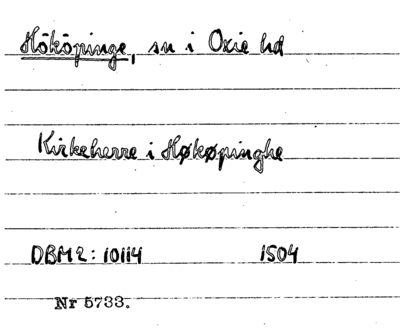 Hököpinge, sn i Oxie hd
Kirkeherre i Høkøpinghe
DBM2: 10114 1504
Nr 5733.